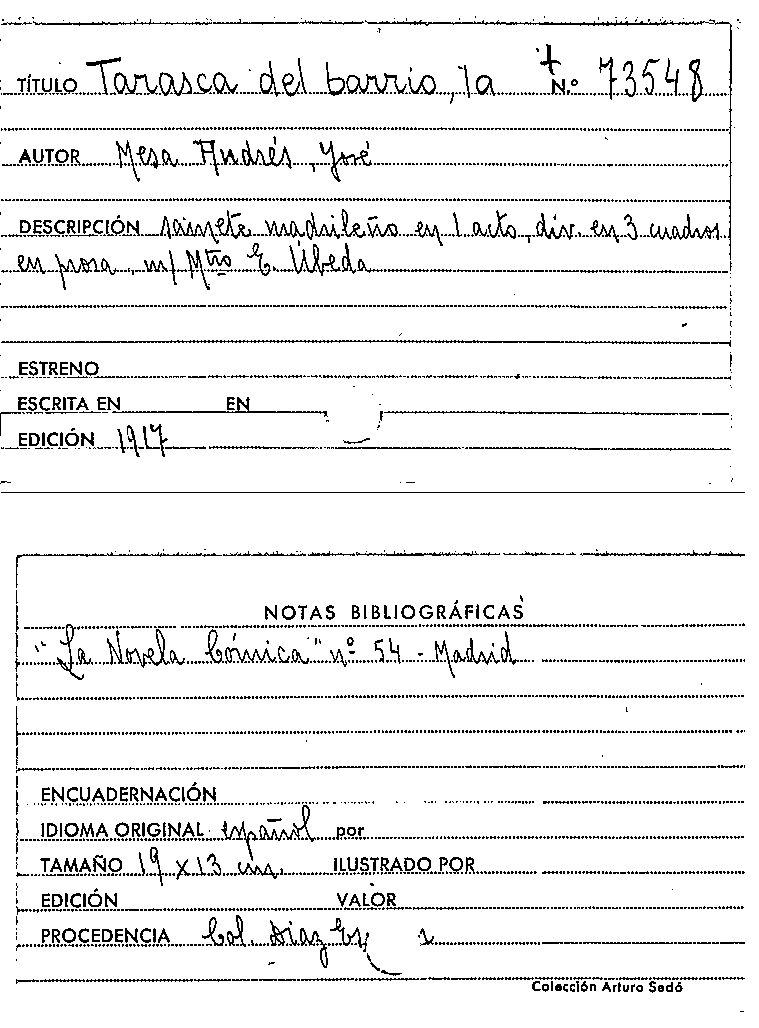 TÍTULO Tarasca del barrio, la + N.º 73548
AUTOR Mesa Andrés, José
DESCRIPCIÓN sainete madrileño en 1 acto, div. en 3 cuadros
en prosa, m/ Mtro E. Úbeda
ESTRENO
ESCRITA EN EN
EDICIÓN 1917
NOTAS BIBLIOGRÁFICAS
"La Novela Cómica" nº 54 - Madrid
ENCUADERNACIÓN
IDIOMA ORIGINAL español por
TAMAÑO 19 x 13 cm. ILUSTRADO POR
EDICIÓN VALOR
PROCEDENCIA Col. Díaz
Colección Arturo Sedó